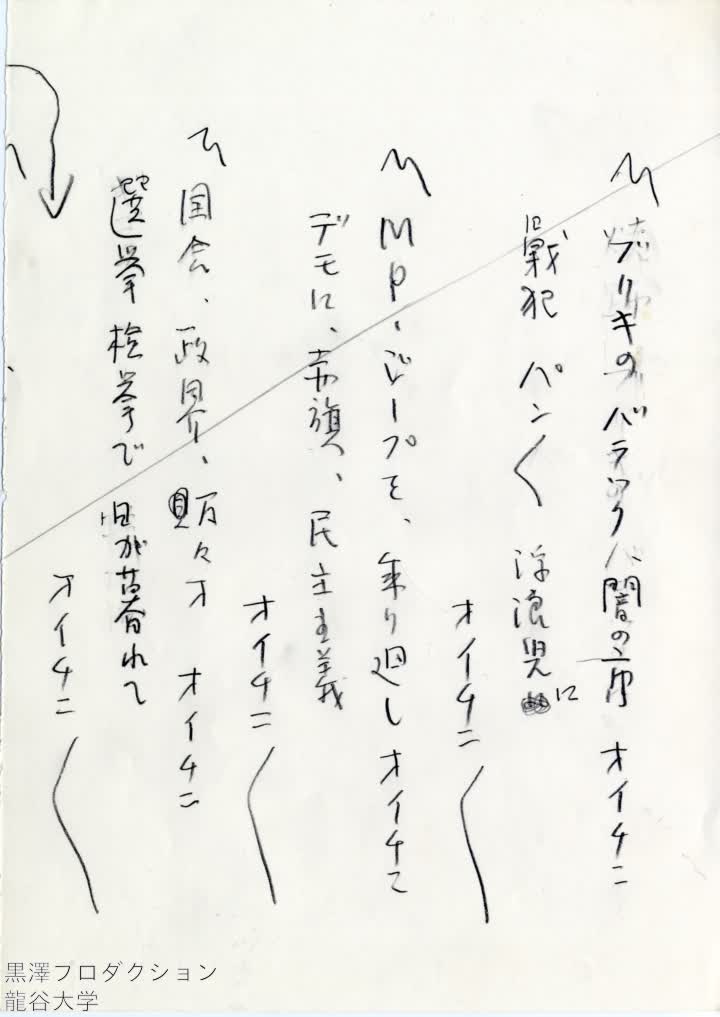 〽ブリキのバラック、闇の市 オイチニ
旧戦犯 パン〱 浮浪児に
オイチニ 〱
〽MP、ジープを、乗り廻し オイチニ
デモに、赤旗、民主主義
オイチニ 〱
〽国会、政界、 万々才 オイチニ
選挙 検挙で 日が暮れて
オイチニ 〱
黒澤プロダクション
龍谷大学